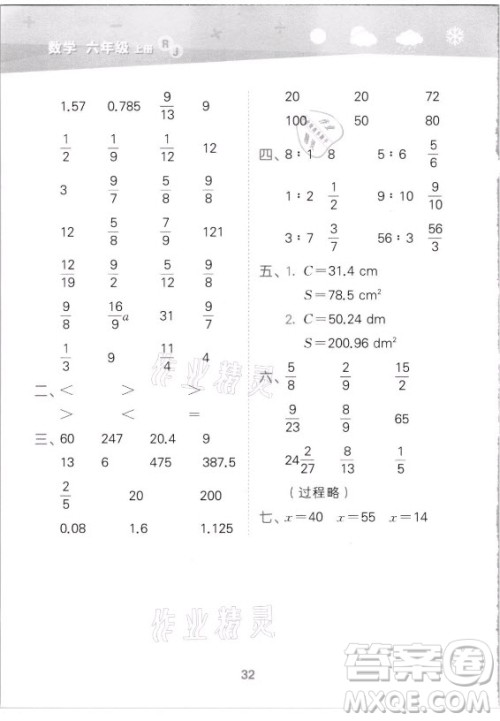 数学 六年级 上册 RJ
1.57 0.785 9/13 9
1/2 1/9 1/12 12
3 9/7 5/8 9/8
12 5/8 7/9 121
12/19 12/9 5/8 5/9
9/8 16/9 a 31 9/7
1/3 9 11/4 4
二、< > >
> < =
三、60 247 20.4 9
13 6 475 387.5
2/5 20 200
0.08 1.6 1.125
20 20 72
100 50 80
四、8∶1 8 5∶6 5/6
1∶2 1/2 9∶10 9/10
3∶7 3/7 56∶3 56/3
五、1. C=31.4 cm
S=78.5 cm²
2. C=50.24 dm
S=200.96 dm²
六、5/8 2/9 15/2
9/23 8/9 65
24 2/27 8/13 1/5
(过程略)
七、x=40 x=55 x=14
作业精灵
作业精灵
32
答案圈
MXQE.COM